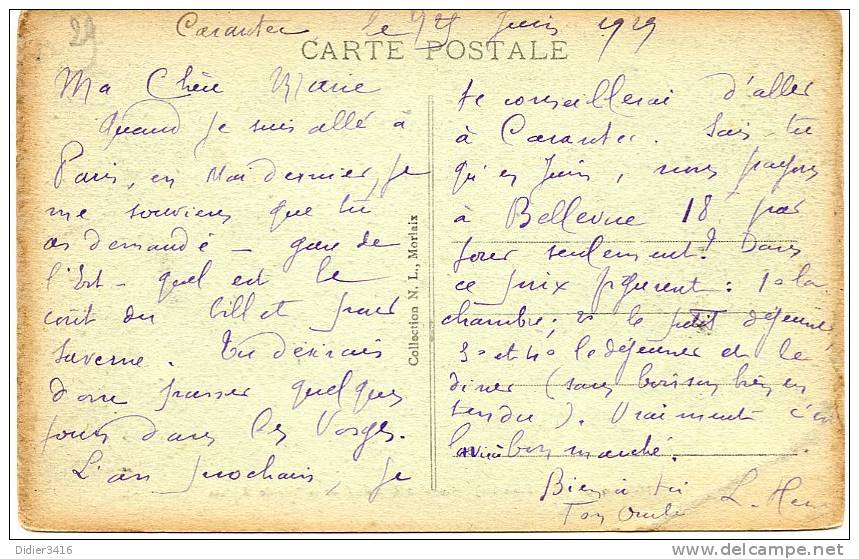 29
Carantec, le 25 Juin 1929
CARTE POSTALE
Ma Chère Marie
Quand je suis allé à
Paris, en Mai dernier, je
me souviens que tu
as demandé - gare de
l'Est - quel est le
coût du billet pour
Saverne. Tu désirais
donc passer quelques
jours dans les Vosges.
L'an prochain, je
Collection N. L., Morlaix
te conseillerai d'aller
à Carantec. Sais-tu
qu'en Juin, nous payons
à Bellevue 18 par
jour seulement? Dans
ce prix figurent: 1° la
chambre; 2° le petit déjeuner,
3° et 4° le déjeuner et le
dîner (sans boisson bien en
tendu). Vraiment c'est
bon marché.
Bien à toi
Ton Oncle L.
Didier3416
delcampe.net